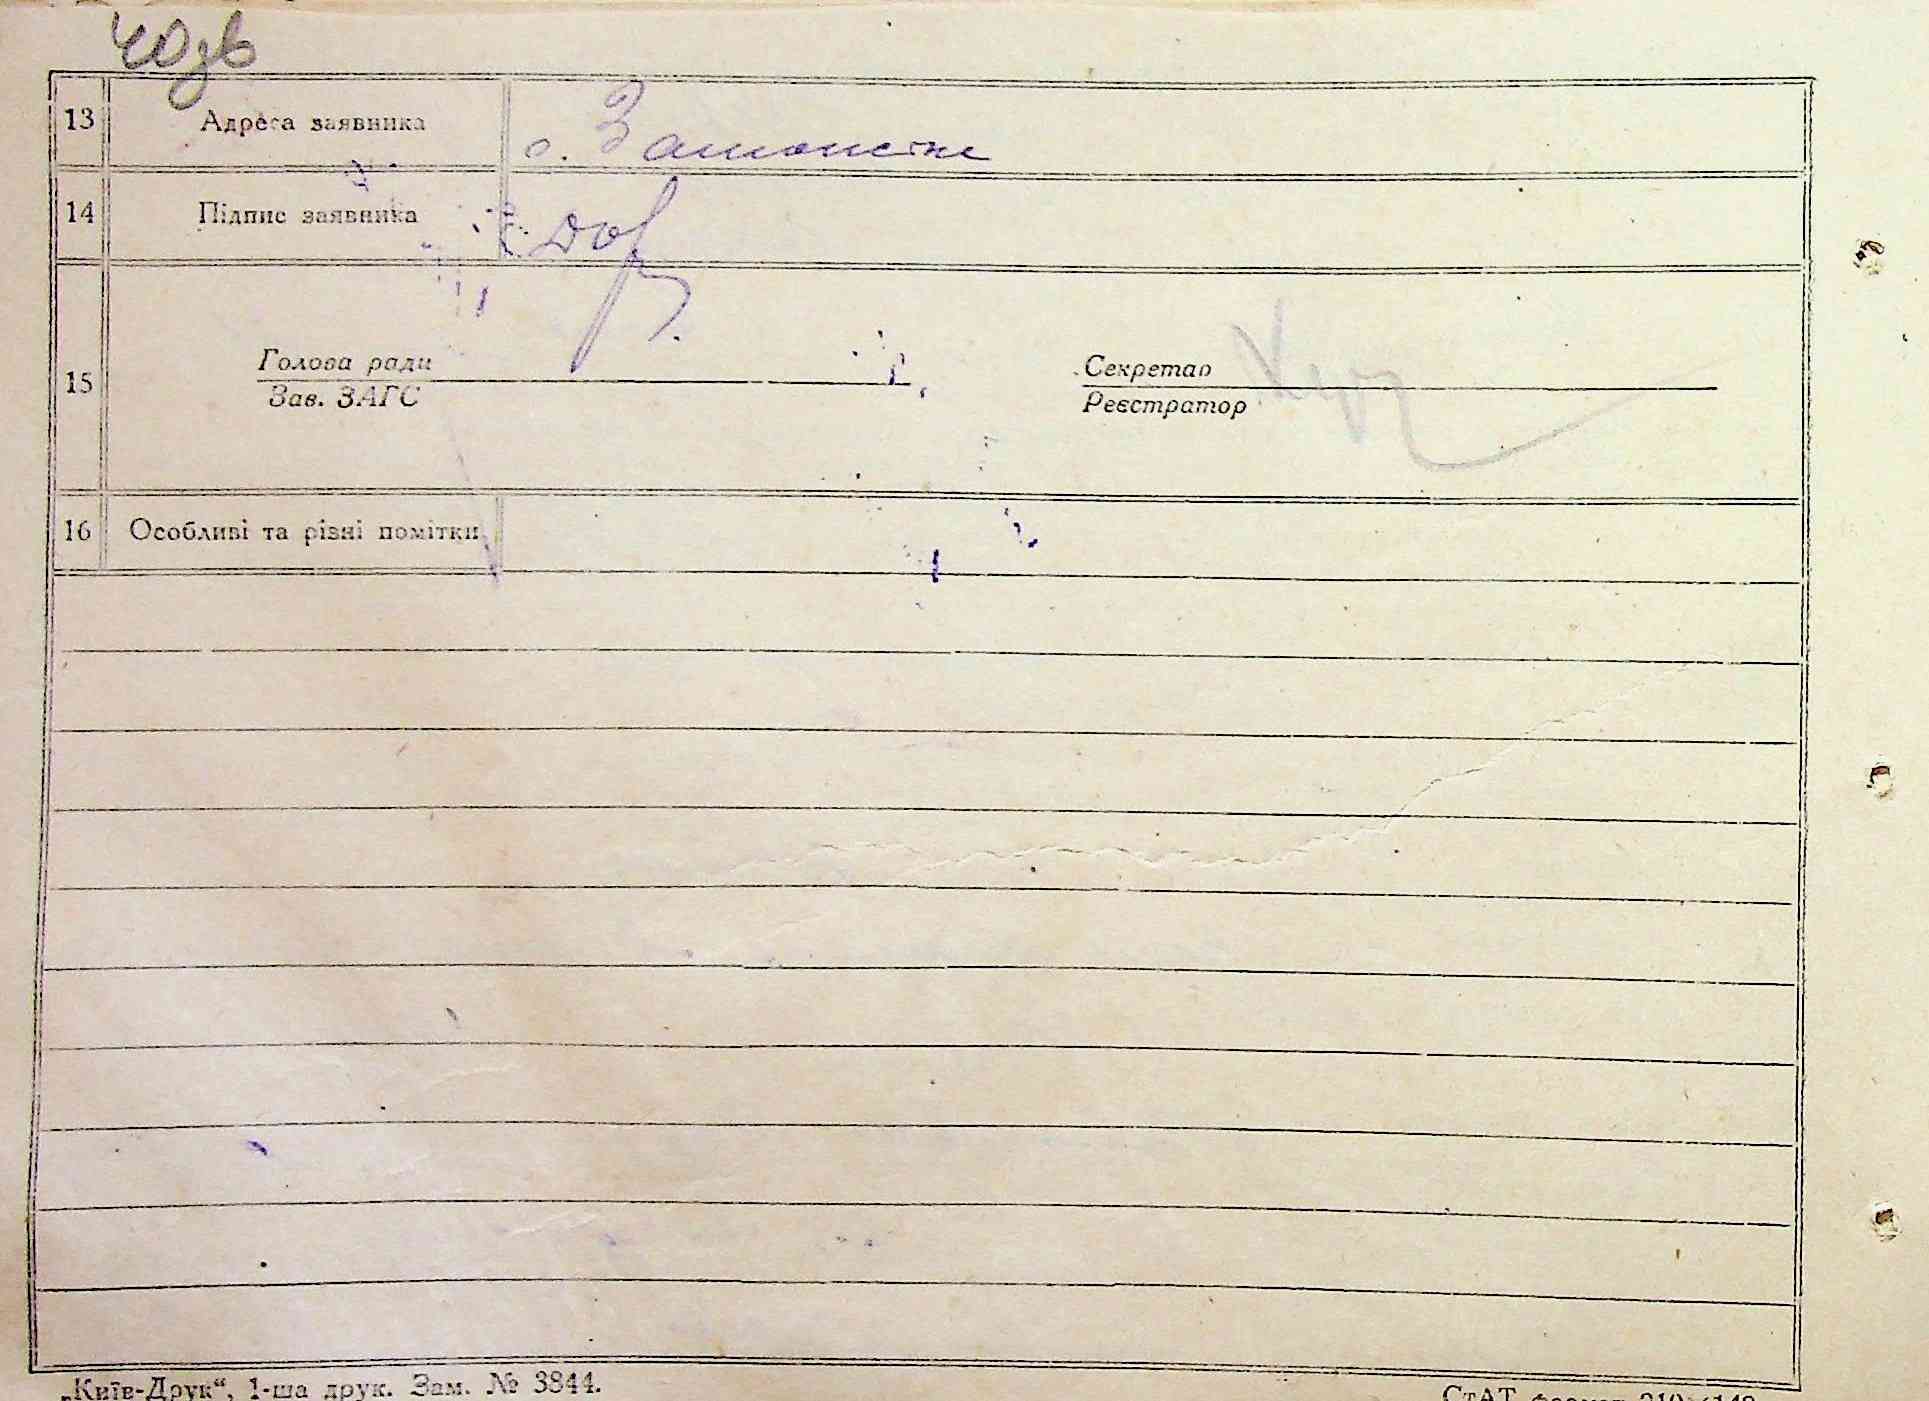 40зв
13 Адреса заявника с.
14 Підпис заявника
15 Голова ради Секретар
Зав. ЗАГС Реєстратор
16 Особливі та різні помітки
„Київ-Друк“, 1-ша друк. Зам. № 3844. СтАТ формат 210×148